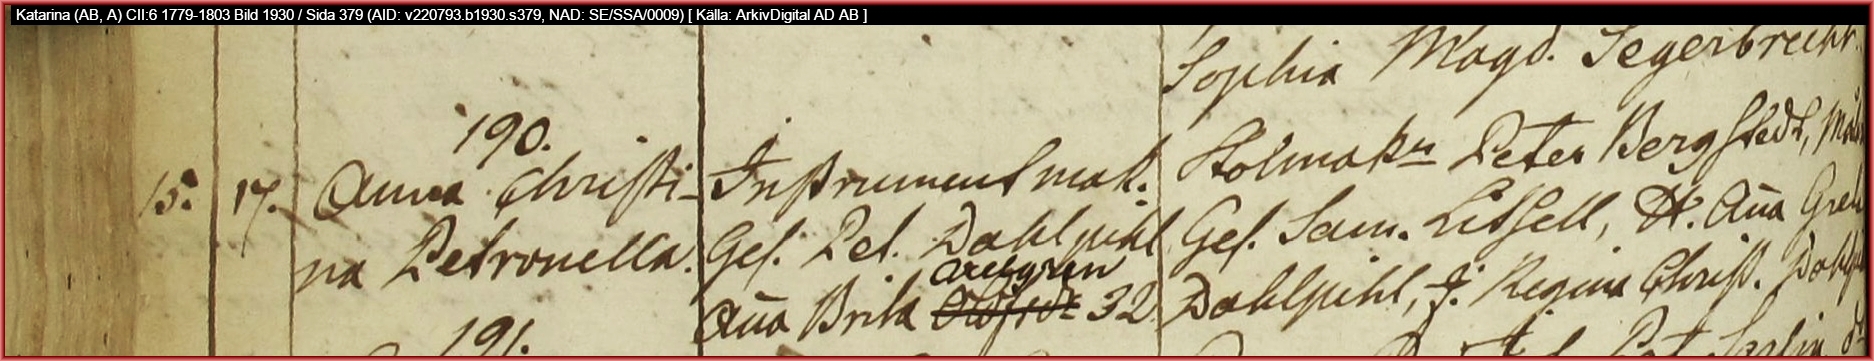 Katarina (AB, A) CII:6 1779-1803 Bild 1930 / Sida 379 (AID: v220793.b1930.s379, NAD: SE/SSA/0009) [ Källa: ArkivDigital AD AB ]
Sophia Magd. Segerbrecht.
190.
15. 17. Anna Christi-
na Petronella.
Instrumentmak.
Ges. Pet. Dahlpihl
Arelgren
Aña Brita 32.
Stolmakn Peter Bergstedt,
Ges. Sam. Lidsell, H. Aña Gret
Dahlpihl, J. Regina Christ.
191.